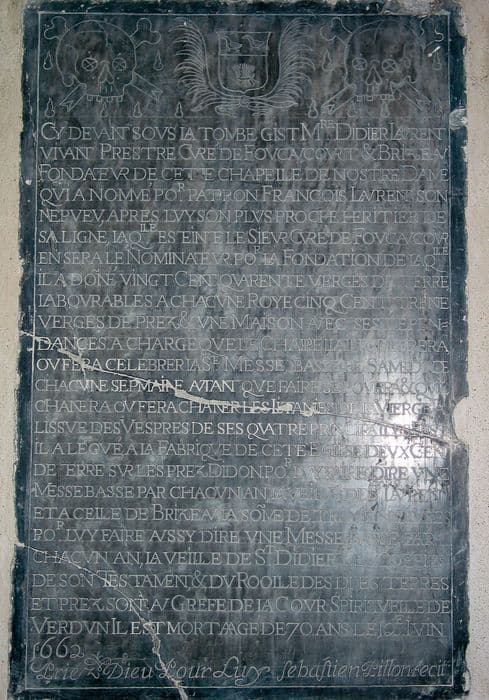 CY DEVANT SOVS LA TOMBE GIST M.RE DIDIER LAVRENT
VIVANT PRESTRE CVRE DE FOVCAVCOVRT & BRIZEAV
FONDATEVR DE CETTE CHAPELLE DE NOSTRE DAME
QVI A NOMMÉ PO.R PATRON FRANCOIS LAVRENT SON
NEPVEV, APRES LVY SON PLVS PROCHE HERITIER DE
SA LIGNE, LAQ.ILE ESTEINTE LE SIEVR CVRE DE FOVCAVCOVR
EN SERA LE NOMINATEVR PO.R LA FONDATION DE LAQ.ILE
IL A DOÑÉ VINGT CENT QVARENTE VERGES DE TERRE
LABOVRABLES A CHACVNE ROYE CINQ CENT TRENTE
VERGES DE PREZ & VNE MAISON AVEC SES DEPEN-
DANCES A CHARGE QVE LE CHAPELLAIN CELEBRERA
OV FERA CELEBRER LA STE MESSE BASSE LE SAMEDY DE
CHACVNE SEPMAINE AVTANT QVE FAIRE SE POVRA &
CHANERA OV FERA CHANER LES LITANIES DE LA VIERGE A
LISSVE DES VESPRES DE SES QVATRE
IL A LEGVE A LA FABRIQVE DE CETE EGLISE DEVX CEN
DE TERRE SVR LES PREZ DIDON PO.R LVY FAIRE DIRE VNE
MESSE BASSE PAR CHACVN AN LA VEILLE DE ST LAVRENT
ET A CELLE DE BRIZEAV LA SOM̃E DE
PO.R LVY FAIRE AVSSY DIRE VNE MESSE BASSE PAR
CHACVN AN, LA VEILLE DE ST DIDIER
DE SON TESTAMEN & DV ROOLLE DES DITES TERRES
ET PREZ SONT AV GREFE DE LA COVR SPIRITVELLE DE
VERDVN IL EST MORT AAGE DE 70 ANS LE IVIN
1662
Prie Dieu Pour Luy Sebastien Pillon fecit